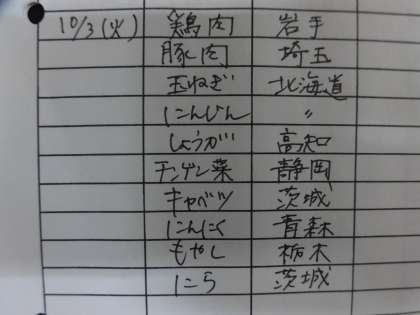 10/3(火) 鶏肉 岩手
豚肉 埼玉
玉ねぎ 北海道
にんじん 〃
しょうが 高知
チンゲン菜 静岡
キャベツ 茨城
にんにく 青森
もやし 栃木
にら 茨城